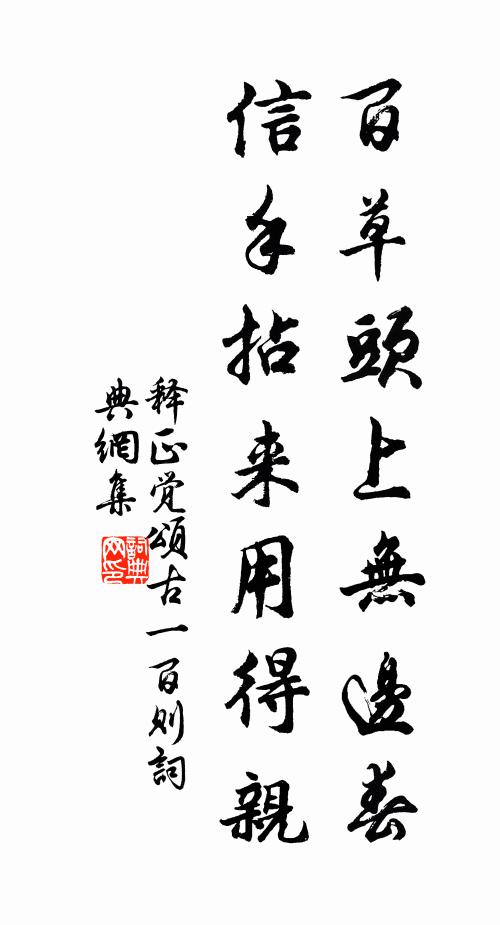 百草頭上無邊春
信手拈来用得親
释正觉頌古一百则詞
典網集
詞典网印